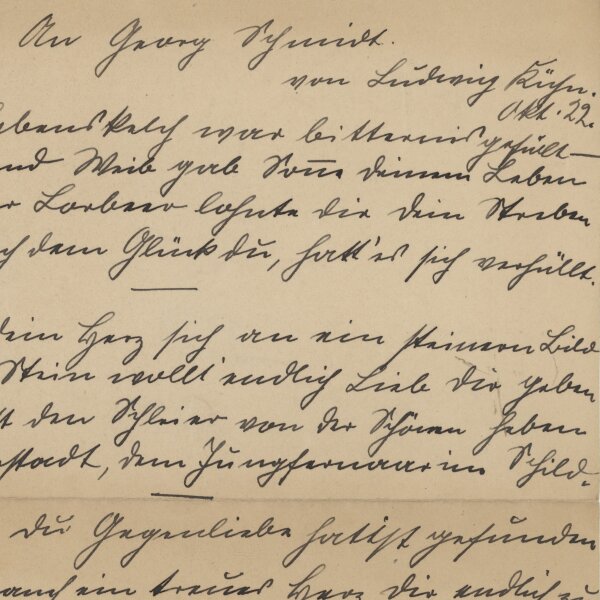 An Georg Schmidt.
von Ludwig Kühn.
Okt. 22.
ebenskelch war bitternisgefüllt—
nd Weib gab Sonne deinem Leben
r Lorbeer lohnte dir dein Streben
ch dem Glück du, hatt' es sich verhüllt.
dein Herz sich an ein steinern Bild
Stein wollt' endlich Lieb dir geben
t den Schleier von der Schönen heben
stadt, dem Jungfernaar im Schild.
du Gegenliebe hattst gefunden
auch ein treues Herz dir endlich